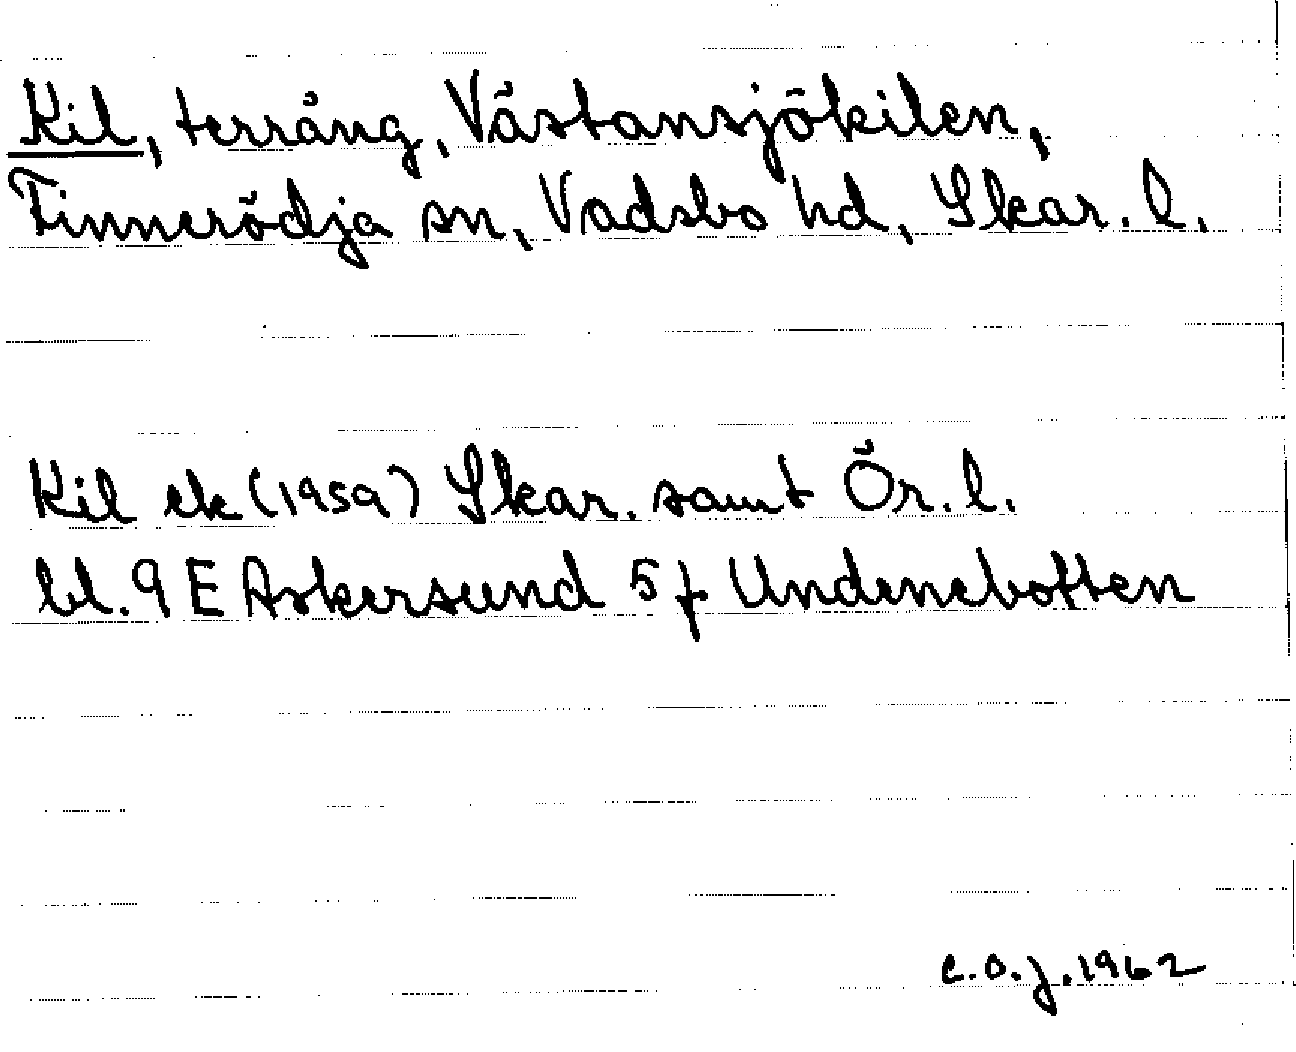 Kil, terräng, Västansjökilen,
Finnerödja sn, Vadsbo hd, Skar. l.
Kil ek (1959) Skar. samt Ör. l.
bl. 9 E Askersund 5 f Undenebotten
C.O.J. 1962